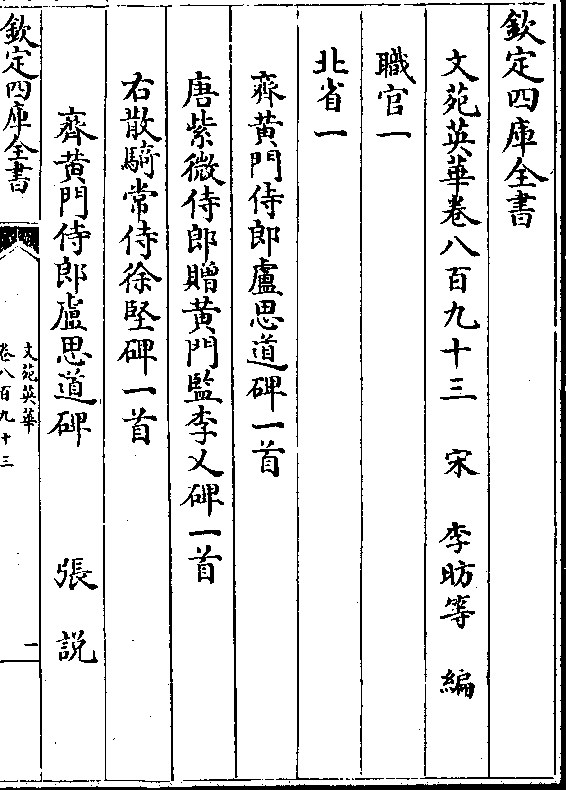 欽定四庫全書
文苑英華卷八百九十三 宋 李昉等 編
職官一
北省一
齊黄門侍郎盧思道碑一首
唐紫微侍郎贈黄門監李乂碑一首
右散騎常侍徐堅碑一首
齊黄門侍郎盧思道碑 張説
欽定四庫全書
文苑英華
卷八百九十三
二